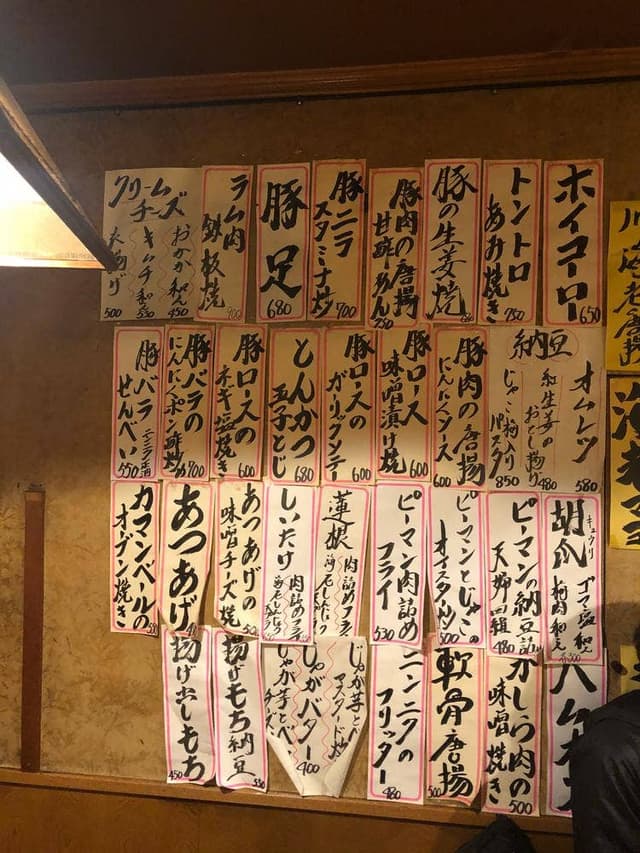 ホイコーロー
650
トントロ
あみ焼き
750
豚の生姜焼
豚肉の唐揚
甘酢あん
750
豚ニラ
スタミナ炒
700
豚足
680
ラム肉
鉄板焼
900
クリーム
チーズ
おかか和え
450
キムチ和え
550
500
納豆
オムレツ
580
紅生姜の
おとし揚げ
480
じゃこ梅入り
パスタ
850
豚肉の唐揚
にんにくソース
600
豚ロース
味噌漬け焼
600
豚ロースの
ガーリックソテー
600
とんかつ
玉子とじ
680
豚ロースの
ネギ塩焼き
600
豚バラの
にんにくポン酢炒め
900
豚バラ
せんべい
550
胡瓜
キュウリ
ゴマ塩和え
梅肉和え
ピーマンの納豆詰
天ぷら
480
ピーマンとじゃこの
オイスター炒
500
ピーマン肉詰め
フライ
530
蓮根
肉詰めフライ
しいたけ
肉詰めフライ
あつあげの
味噌チーズ焼
あつあげ
カマンベールの
オーブン焼き
かしら肉の
味噌焼き
500
軟骨唐揚
500
ニンニクの
フリッター
480
じゃが芋とベーコン
マスタード炒
じゃがバター
400
揚げもち納豆
550
揚げ出しもち
450